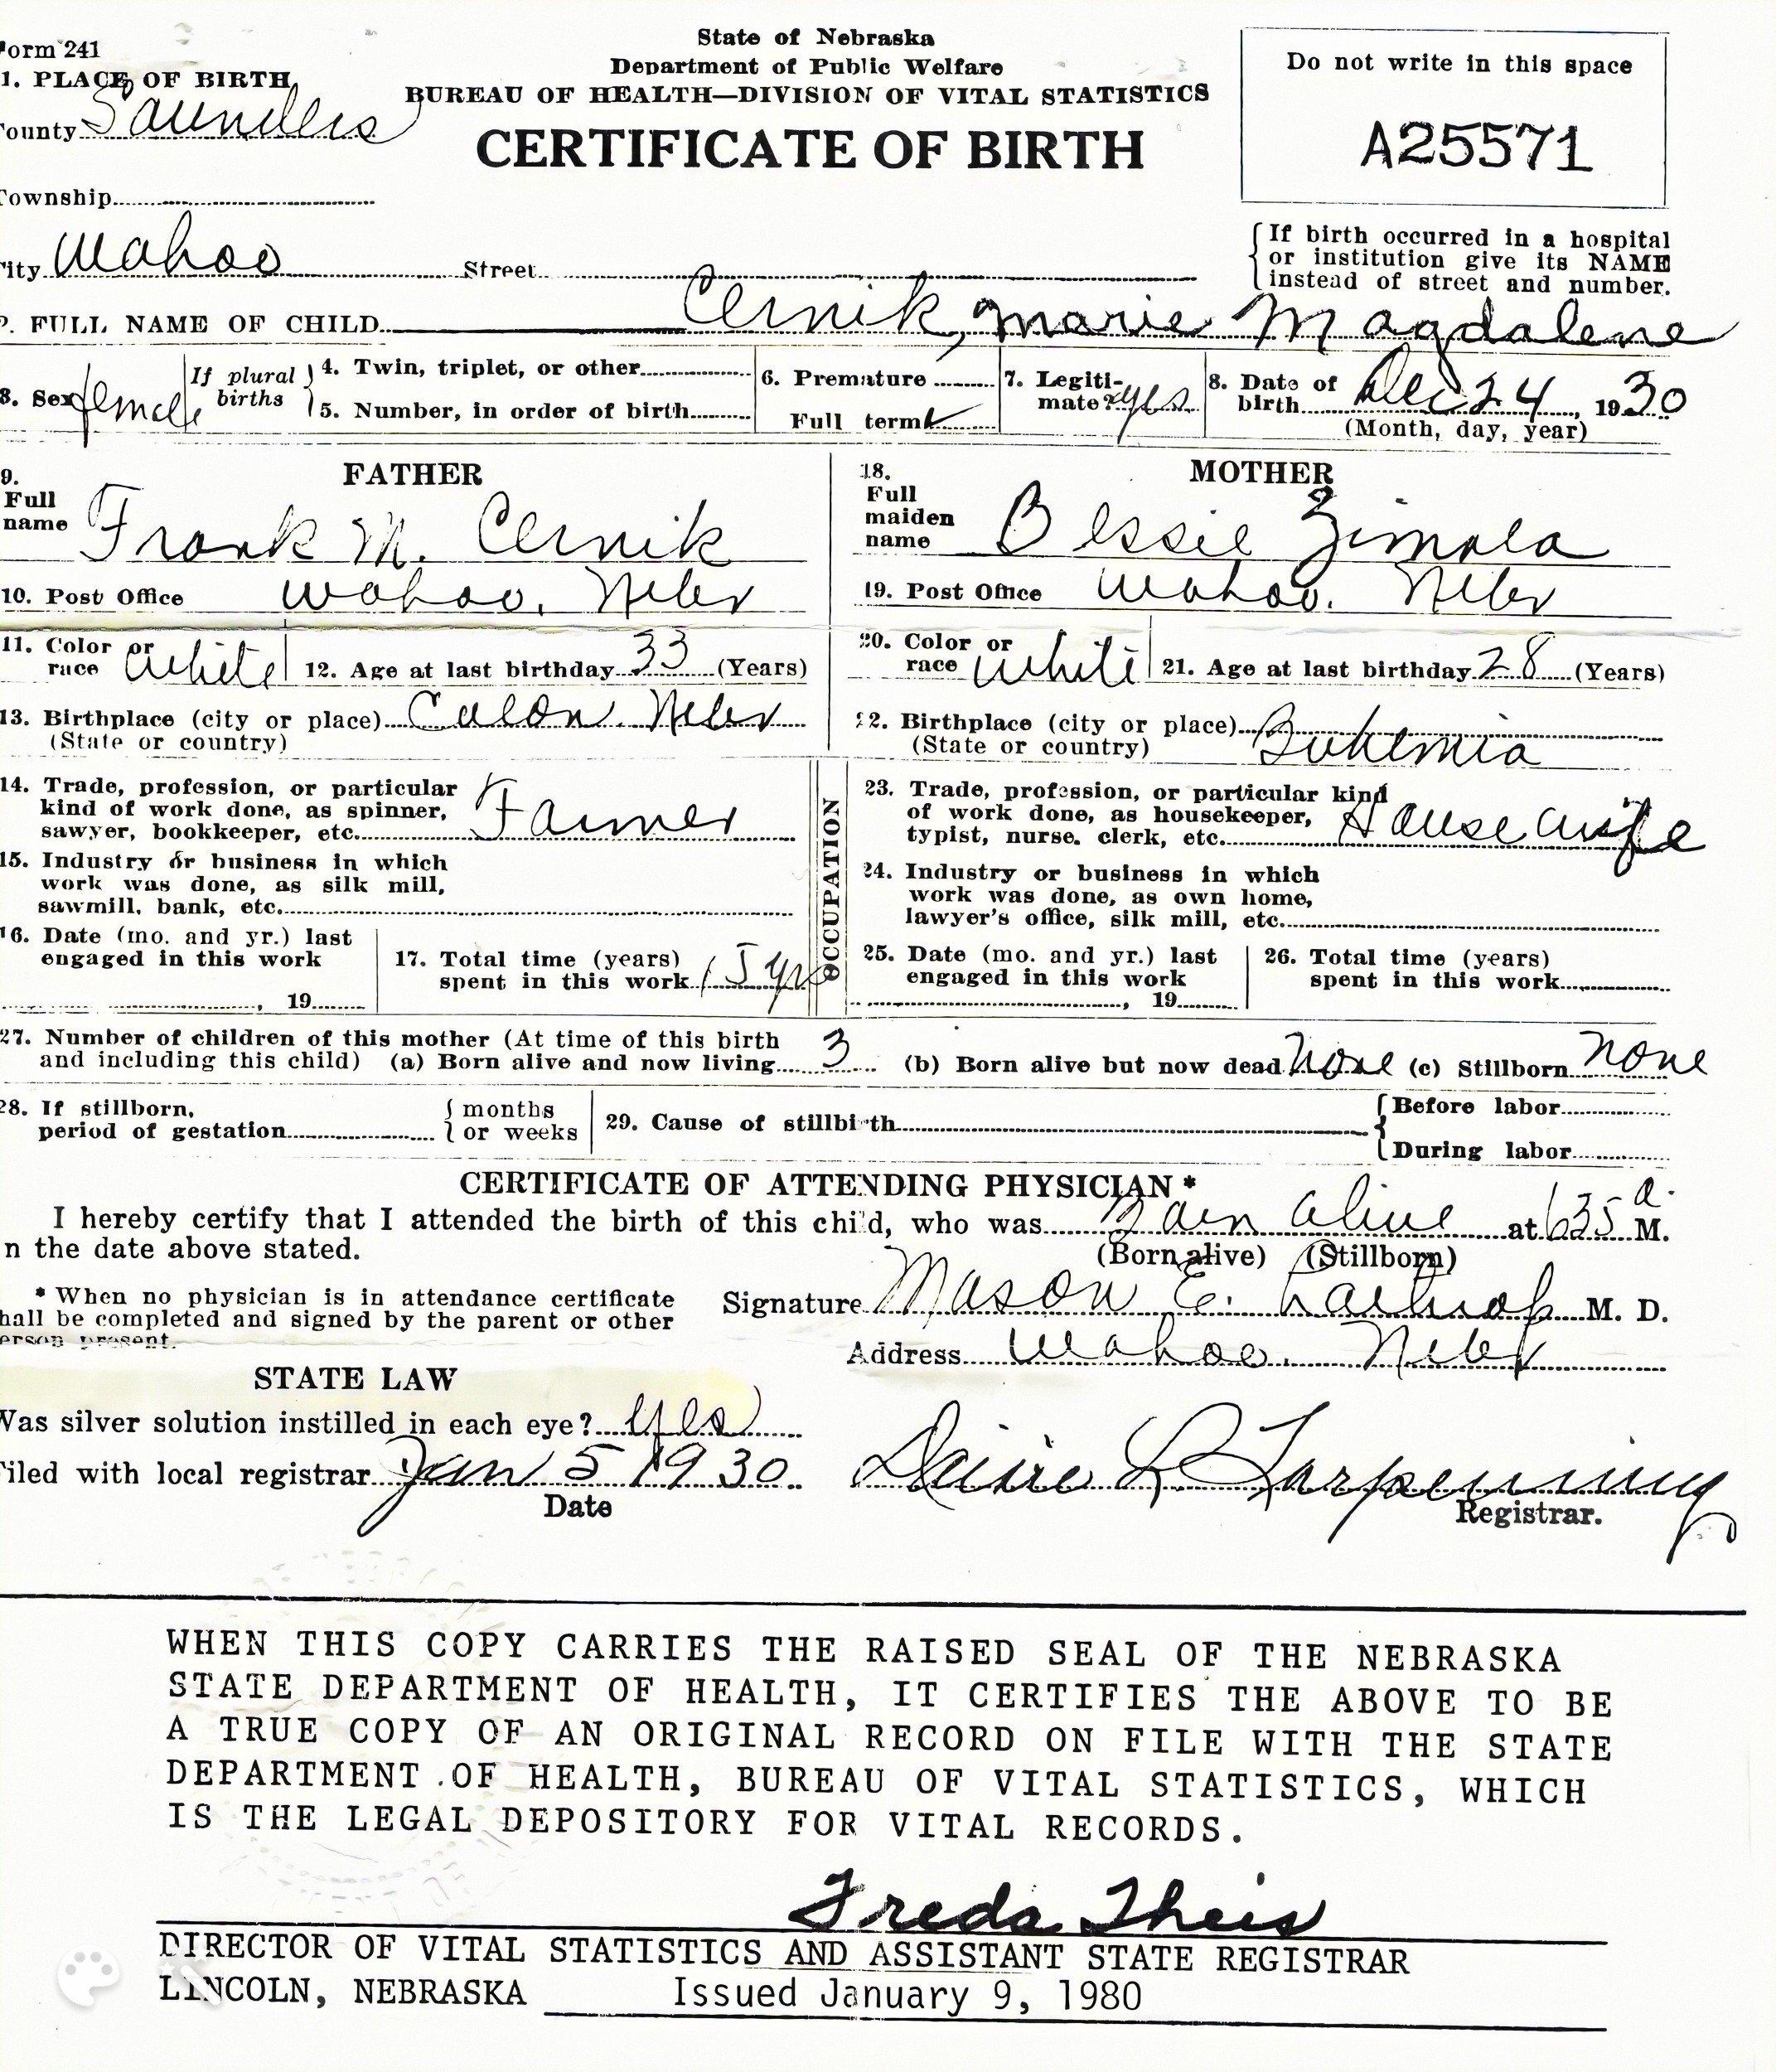 Form 241
State of Nebraska
Department of Public Welfare
BUREAU OF HEALTH—DIVISION OF VITAL STATISTICS
CERTIFICATE OF BIRTH
Do not write in this space
A25571
1. PLACE OF BIRTH
County Saunders
Township
City Wahoo Street
{If birth occurred in a hospital
or institution give its NAME
instead of street and number.
2. FULL NAME OF CHILD Cernik, Marie Magdalene
3. Sex female If plural births } 4. Twin, triplet, or other
5. Number, in order of birth
6. Premature
Full term ✓
7. Legitimate? yes
8. Date of birth Dec 24, 1930
(Month, day, year)
FATHER
9. Full name Frank M. Cernik
10. Post Office Wahoo, Nebr
11. Color or race White 12. Age at last birthday 33 (Years)
13. Birthplace (city or place) Colon, Nebr
(State or country)
14. Trade, profession, or particular
kind of work done, as spinner,
sawyer, bookkeeper, etc. Farmer
15. Industry or business in which
work was done, as silk mill,
sawmill, bank, etc.
16. Date (mo. and yr.) last
engaged in this work
, 19
17. Total time (years)
spent in this work 15 yrs
OCCUPATION
MOTHER
18. Full maiden name Bessie Zimola
19. Post Office Wahoo, Nebr
20. Color or race White 21. Age at last birthday 28 (Years)
22. Birthplace (city or place) Bohemia
(State or country)
23. Trade, profession, or particular kind
of work done, as housekeeper,
typist, nurse, clerk, etc. House wife
24. Industry or business in which
work was done, as own home,
lawyer's office, silk mill, etc.
25. Date (mo. and yr.) last
engaged in this work
, 19
26. Total time (years)
spent in this work
27. Number of children of this mother (At time of this birth
and including this child) (a) Born alive and now living 3 (b) Born alive but now dead None (c) Stillborn None
28. If stillborn,
period of gestation { months
or weeks
29. Cause of stillbirth { Before labor
During labor
CERTIFICATE OF ATTENDING PHYSICIAN*
I hereby certify that I attended the birth of this child, who was Born alive at 635 a. M.
on the date above stated. (Born alive) (Stillborn)
* When no physician is in attendance certificate
shall be completed and signed by the parent or other
person present.
Signature Mason E. Lathrop M. D.
Address Wahoo, Nebr
STATE LAW
Was silver solution instilled in each eye? yes
Filed with local registrar Jan 5 1930
Date
L Tarpenning
Registrar.
WHEN THIS COPY CARRIES THE RAISED SEAL OF THE NEBRASKA
STATE DEPARTMENT OF HEALTH, IT CERTIFIES THE ABOVE TO BE
A TRUE COPY OF AN ORIGINAL RECORD ON FILE WITH THE STATE
DEPARTMENT OF HEALTH, BUREAU OF VITAL STATISTICS, WHICH
IS THE LEGAL DEPOSITORY FOR VITAL RECORDS.
Freda Theis
DIRECTOR OF VITAL STATISTICS AND ASSISTANT STATE REGISTRAR
LINCOLN, NEBRASKA Issued January 9, 1980